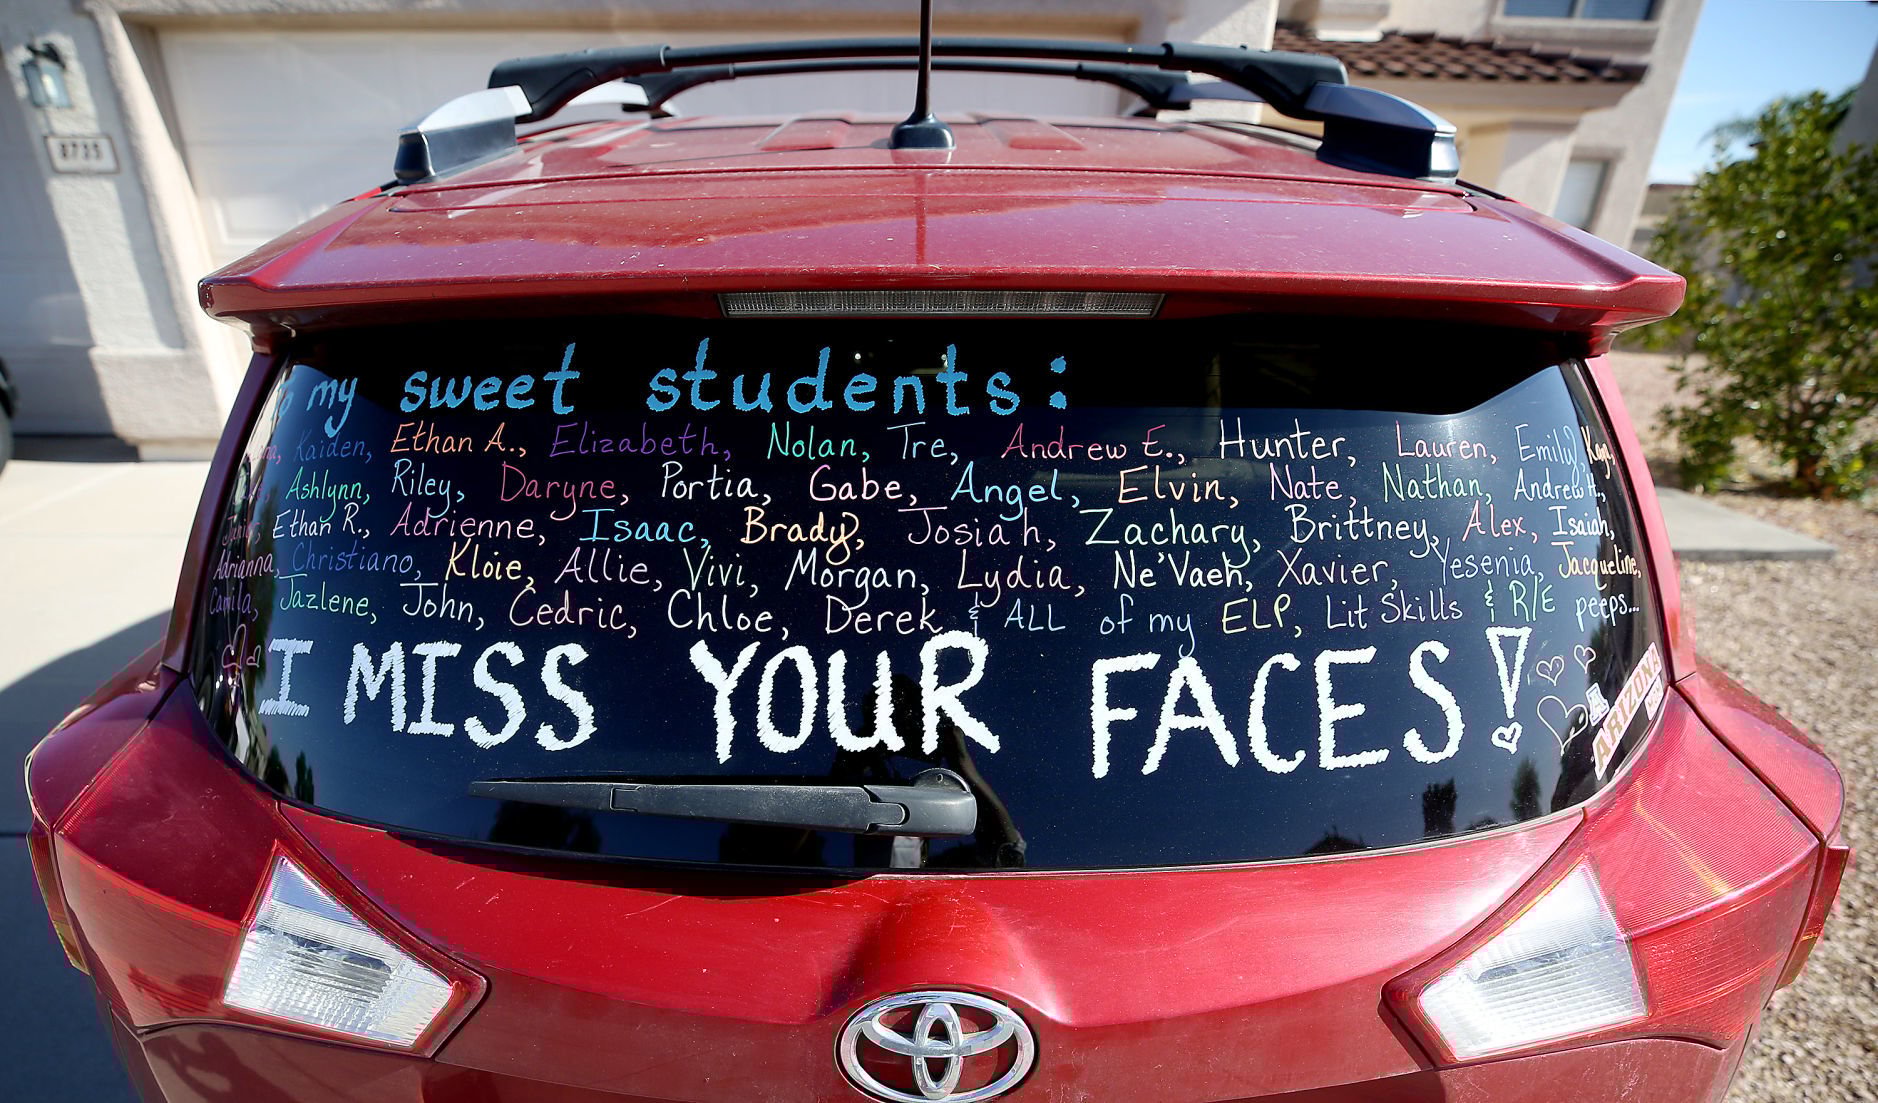 8735
my sweet students:
Kaiden, Ethan A., Elizabeth, Nolan, Tre, Andrew E., Hunter, Lauren, Emily,
Ashlynn, Riley, Daryne, Portia, Gabe, Angel, Elvin, Nate, Nathan, Andrew H.,
Ethan R., Adrienne, Isaac, Brady, Josiah, Zachary, Brittney, Alex, Isaiah,
Adrianna, Christiano, Kloie, Allie, Vivi, Morgan, Lydia, Ne'Vaeh, Xavier, Yesenia, Jacqueline,
Camila, Jazlene, John, Cedric, Chloe, Derek & ALL of my ELP, Lit Skills & R/E peeps...
I MISS YOUR FACES!
A
ARIZONA